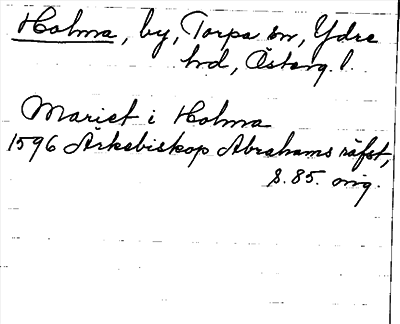 Holma, by, Torpa sn, Ydre
hd, Österg. l.
Mariet i Holma
1596 Ärkebiskop Abrahams räfst,
s. 85. orig.